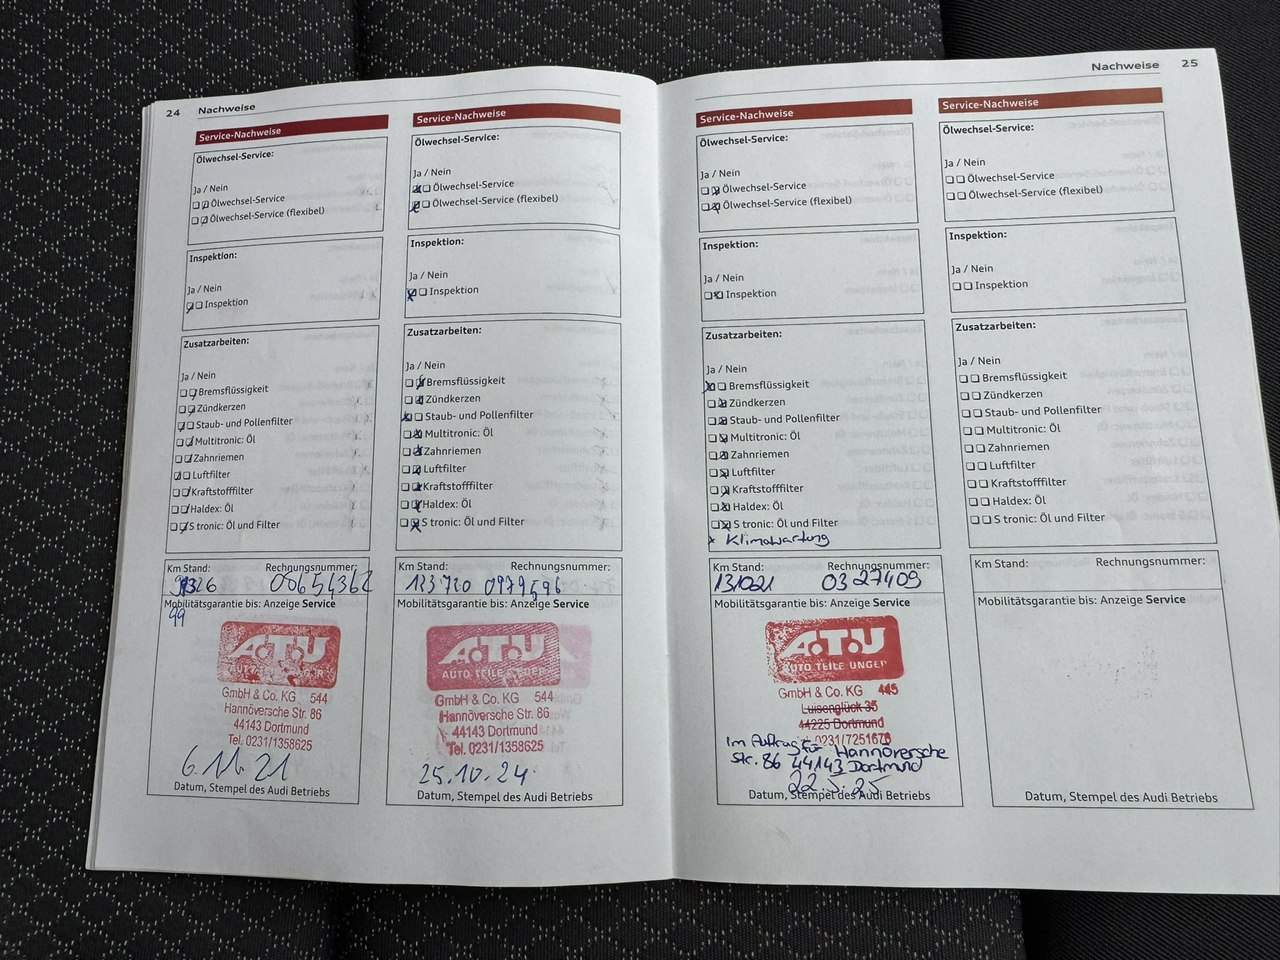 24 Nachweise
Service-Nachweise
Ölwechsel-Service:
Ja / Nein
Ölwechsel-Service
Ölwechsel-Service (flexibel)
Inspektion:
Ja / Nein
Inspektion
Zusatzarbeiten:
Ja / Nein
Bremsflüssigkeit
Zündkerzen
Staub- und Pollenfilter
Multitronic: Öl
Zahnriemen
Luftfilter
Kraftstofffilter
Haldex: Öl
S tronic: Öl und Filter
Km Stand: Rechnungsnummer:
Mobilitätsgarantie bis: Anzeige Service
99
A.T.U
GmbH & Co. KG 544
Hannöversche Str. 86
44143 Dortmund
Tel. 0231/1358625
6.11.21
Datum, Stempel des Audi Betriebs
Service-Nachweise
Ölwechsel-Service:
Ja / Nein
Ölwechsel-Service
Ölwechsel-Service (flexibel)
Inspektion:
Ja / Nein
Inspektion
Zusatzarbeiten:
Ja / Nein
Bremsflüssigkeit
Zündkerzen
Staub- und Pollenfilter
Multitronic: Öl
Zahnriemen
Luftfilter
Kraftstofffilter
Haldex: Öl
S tronic: Öl und Filter
Km Stand: Rechnungsnummer:
123720 0979596
Mobilitätsgarantie bis: Anzeige Service
A.T.U
AUTO TEILE UNGER
GmbH & Co. KG 544
Hannöversche Str. 86
44143 Dortmund
Tel. 0231/1358625
25.10.24
Datum, Stempel des Audi Betriebs
Nachweise 25
Service-Nachweise
Ölwechsel-Service:
Ja / Nein
Ölwechsel-Service
Ölwechsel-Service (flexibel)
Inspektion:
Ja / Nein
Inspektion
Zusatzarbeiten:
Ja / Nein
Bremsflüssigkeit
Zündkerzen
Staub- und Pollenfilter
Multitronic: Öl
Zahnriemen
Luftfilter
Kraftstofffilter
Haldex: Öl
S tronic: Öl und Filter
x Klimawartung
Km Stand: Rechnungsnummer:
131021 0327409
Mobilitätsgarantie bis: Anzeige Service
A.T.U
AUTO TEILE UNGER
GmbH & Co. KG 445
Luisenglück 35
44225 Dortmund
0231/7251678
Im Auftrag für Hannöversche
Str. 86 44143 Dortmund
22.5.25
Datum, Stempel des Audi Betriebs
Service-Nachweise
Ölwechsel-Service:
Ja / Nein
Ölwechsel-Service
Ölwechsel-Service (flexibel)
Inspektion:
Ja / Nein
Inspektion
Zusatzarbeiten:
Ja / Nein
Bremsflüssigkeit
Zündkerzen
Staub- und Pollenfilter
Multitronic: Öl
Zahnriemen
Luftfilter
Kraftstofffilter
Haldex: Öl
S tronic: Öl und Filter
Km Stand: Rechnungsnummer:
Mobilitätsgarantie bis: Anzeige Service
Datum, Stempel des Audi Betriebs